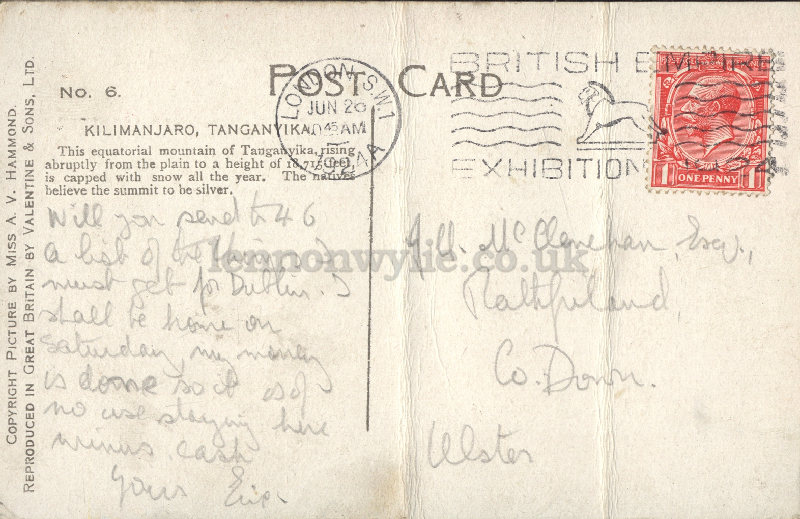 POST CARD
No. 6.
KILIMANJARO, TANGANYIKA.
This equatorial mountain of Tanganyika, rising
abruptly from the plain to a height of feet
is capped with snow all the year. The natives
believe the summit to be silver.
COPYRIGHT PICTURE BY MISS A. V. HAMMOND.
REPRODUCED IN GREAT BRITAIN BY VALENTINE & SONS, LTD.
LONDON. S.W.1
JUN 26
AM
BRITISH EMPIRE
EXHIBITION 1924
ONE PENNY
1 1
Will you send to 46
a list of the things I
must get for Dublin. I
shall be home on
Saturday, my money
is done so it is of
no use staying here
minus cash
Yours Eric.
McClenehan, Esq.,
Rathfriland,
Co. Down.
Ulster
lennonwylie.co.uk